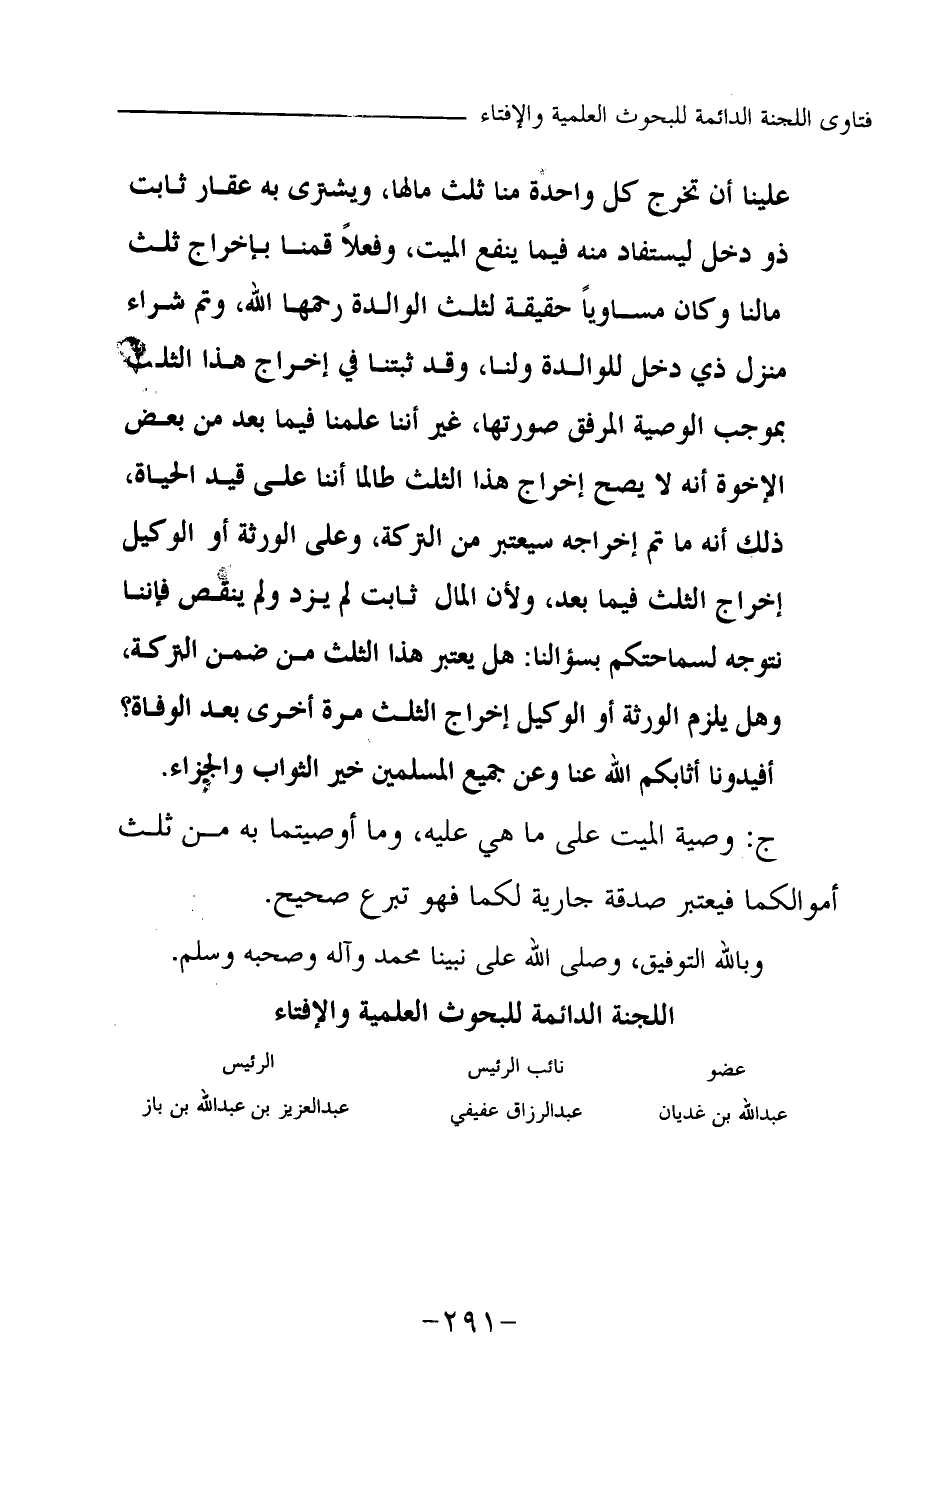 فتاوى اللجنة الدائمة للبحوث العلمية والإفتاء
علينا أن تخرج كل واحدة منا ثلث مالها، ويشترى به عقار ثابت
ذو دخل ليستفاد منه فيما ينفع الميت، وفعلاً قمنا بإخراج ثلث
مالنا وكان مساوياً حقيقة لثلث الوالدة رحمها الله، وتم شراء
منزل ذي دخل للوالدة ولنا، وقد ثبتنا في إخراج هذا الثلث
بموجب الوصية المرفق صورتها، غير أننا علمنا فيما بعد من بعض
الإخوة أنه لا يصح إخراج هذا الثلث طالما أننا على قيد الحياة،
ذلك أنه ما تم إخراجه سيعتبر من التركة، وعلى الورثة أو الوكيل
إخراج الثلث فيما بعد، ولأن المال ثابت لم يزد ولم ينقص فإننا
نتوجه لسماحتكم بسؤالنا: هل يعتبر هذا الثلث من ضمن التركة،
وهل يلزم الورثة أو الوكيل إخراج الثلث مرة أخرى بعد الوفاة؟
أفيدونا أثابكم الله عنا وعن جميع المسلمين خير الثواب والجزاء.
ج: وصية الميت على ما هي عليه، وما أوصيتما به من ثلث
أموالكما فيعتبر صدقة جارية لكما فهو تبرع صحيح.
وبالله التوفيق، وصلى الله على نبينا محمد وآله وصحبه وسلم.
اللجنة الدائمة للبحوث العلمية والإفتاء
عضو نائب الرئيس الرئيس
عبدالله بن غديان عبدالرزاق عفيفي عبدالعزيز بن عبدالله بن باز
-٢٩١-